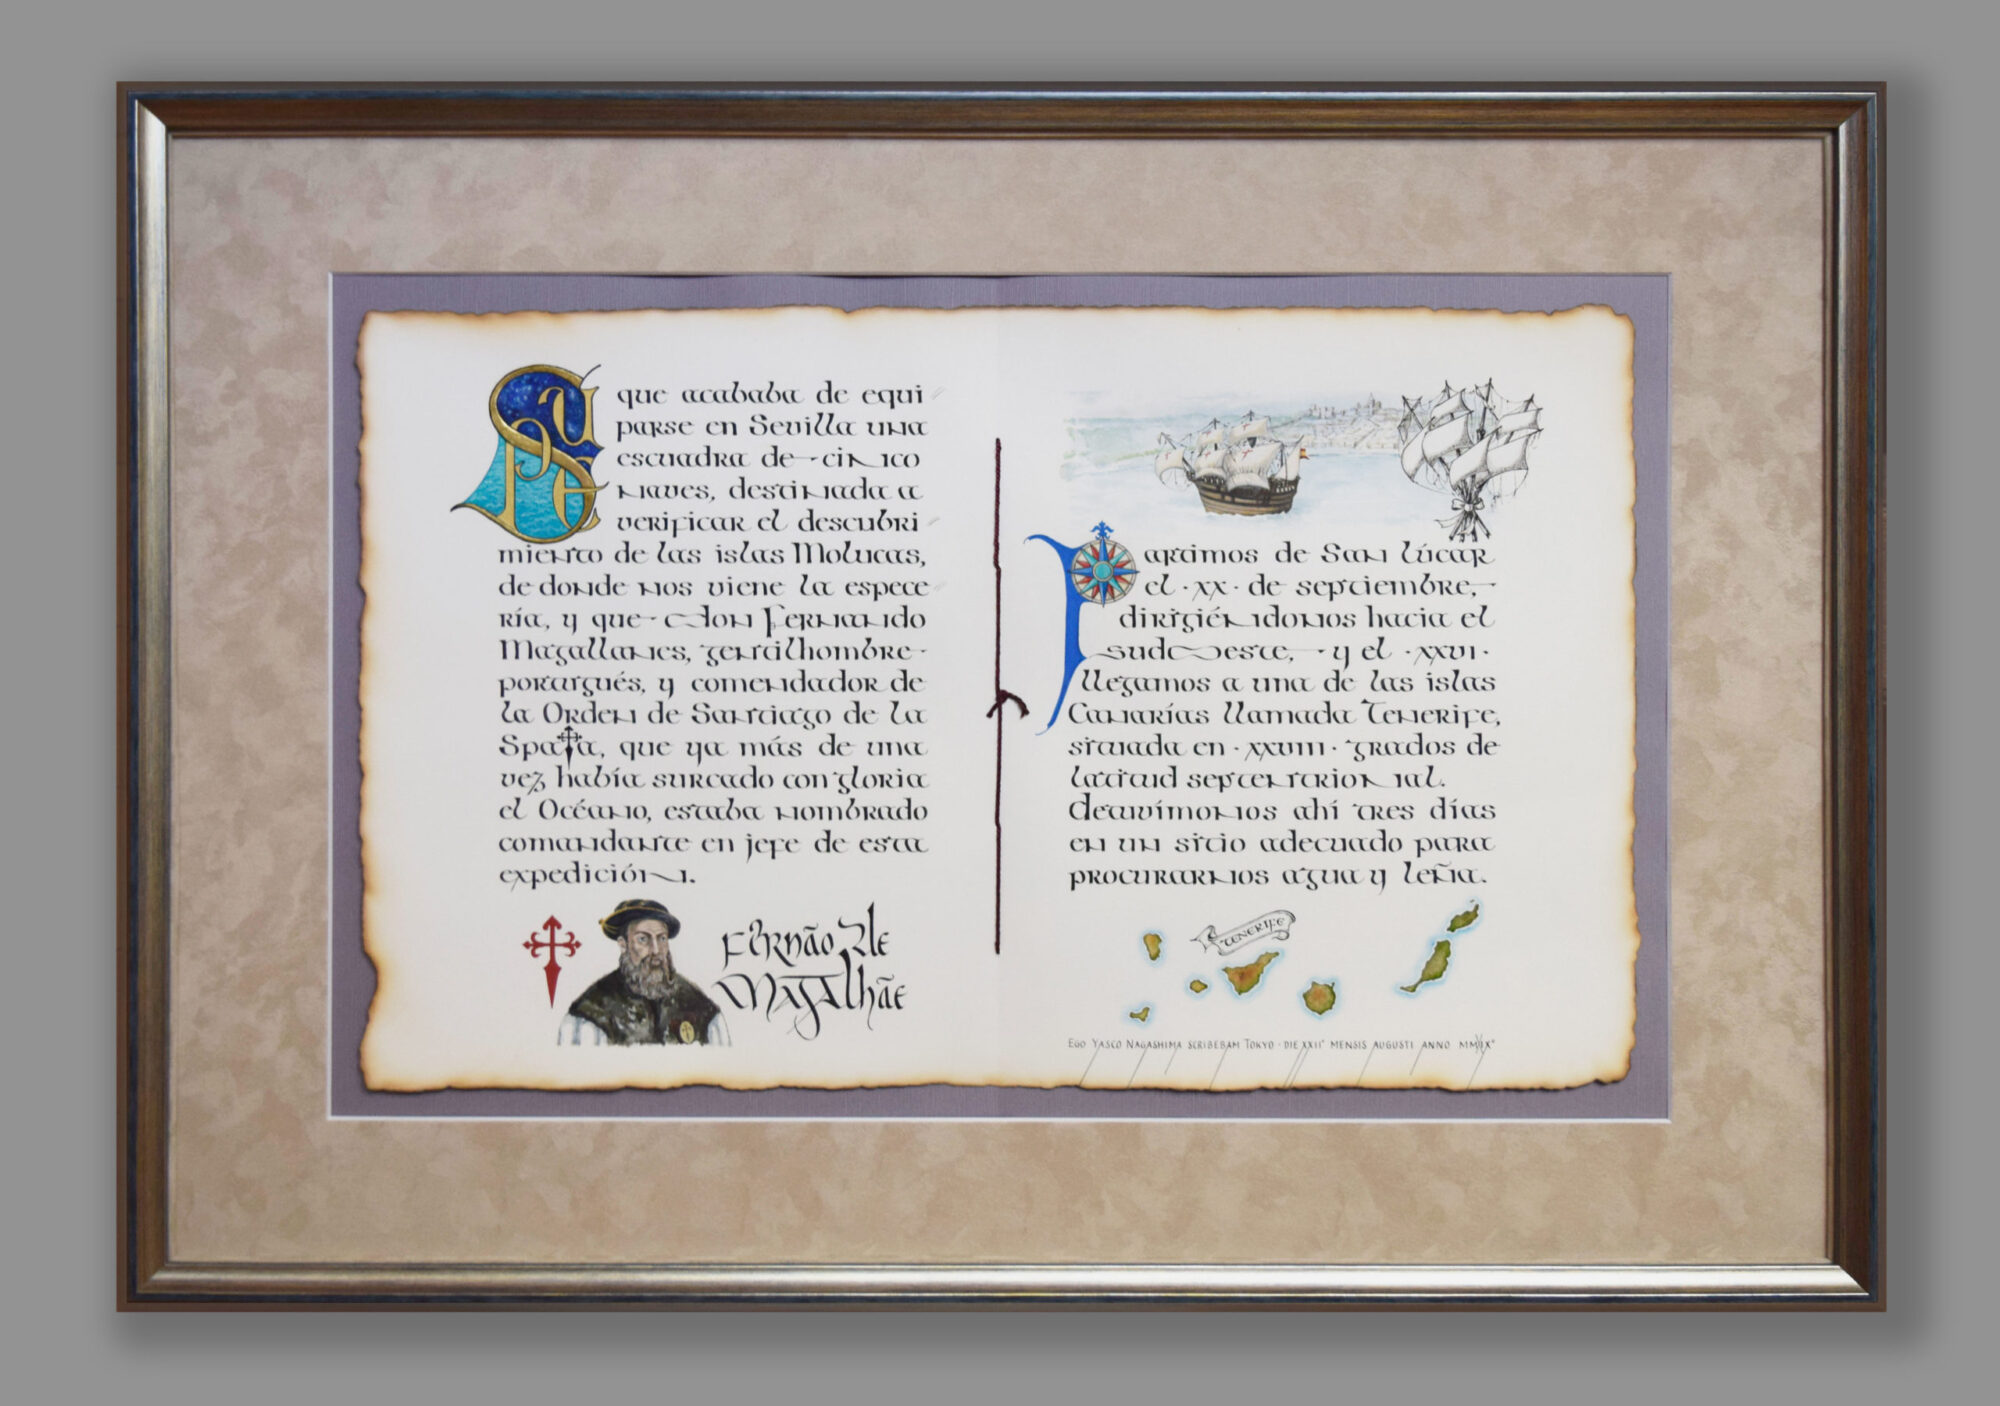 SUPE que acababa de equi
parse en Sevilla una
escuadra de cinco
naves, destinada a
verificar el descubri
miento de las islas Molucas,
de donde nos viene la espece
ría, y que don Fernando
Magallanes, gentilhombre
portugués, y comendador de
la Orden de Santiago de la
Spata, que ya más de una
vez había surcado con gloria
el Océano, estaba nombrado
comandante en jefe de esta
expedición.
Fernão de
Magalhãe
Partimos de San lúcar
el · xx · de septiembre,
dirigiéndonos hacia el
sudoeste, y el · xxvi ·
llegamos a una de las islas
Canarías llamada Tenerife,
situada en · xxviii · grados de
latitud septentrional.
Detuvímonos ahí tres días
en un sitio adecuado para
procurarnos agua y leña.
TENERIFE
EGO YASCO NAGASHIMA SCRIBEBAM TOKYO · DIE XXII° MENSIS AUGUSTI ANNO MMXIX°